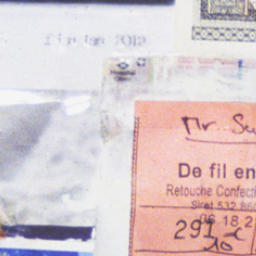 fin Jan 2012
Mr. Su
De fil en
Retouche Confecti
Siret 532 86
06 18 2
291